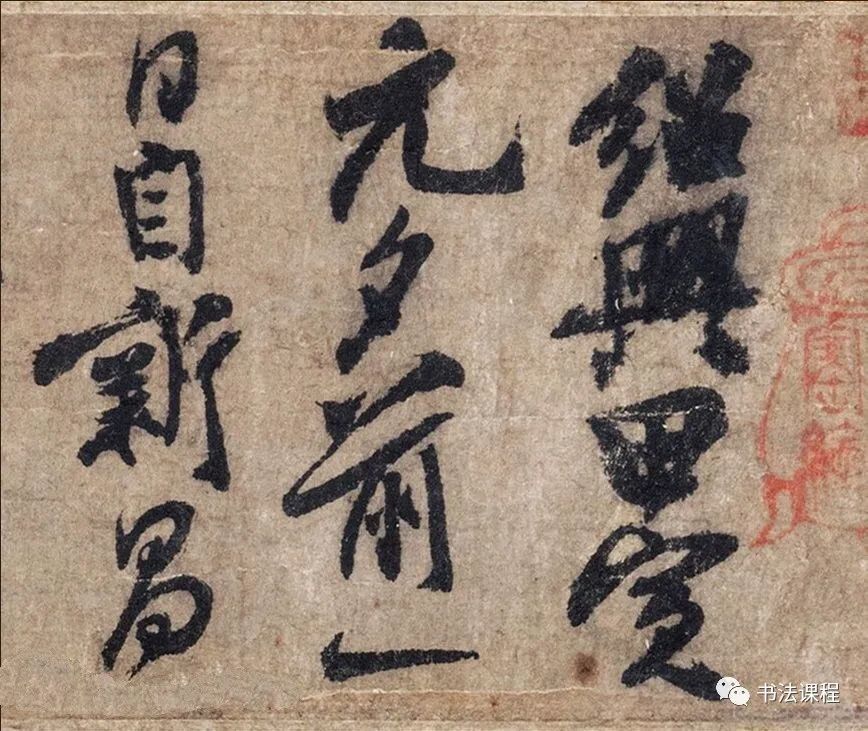 紹興甲寅
元夕前一
日自新昌
书法课程